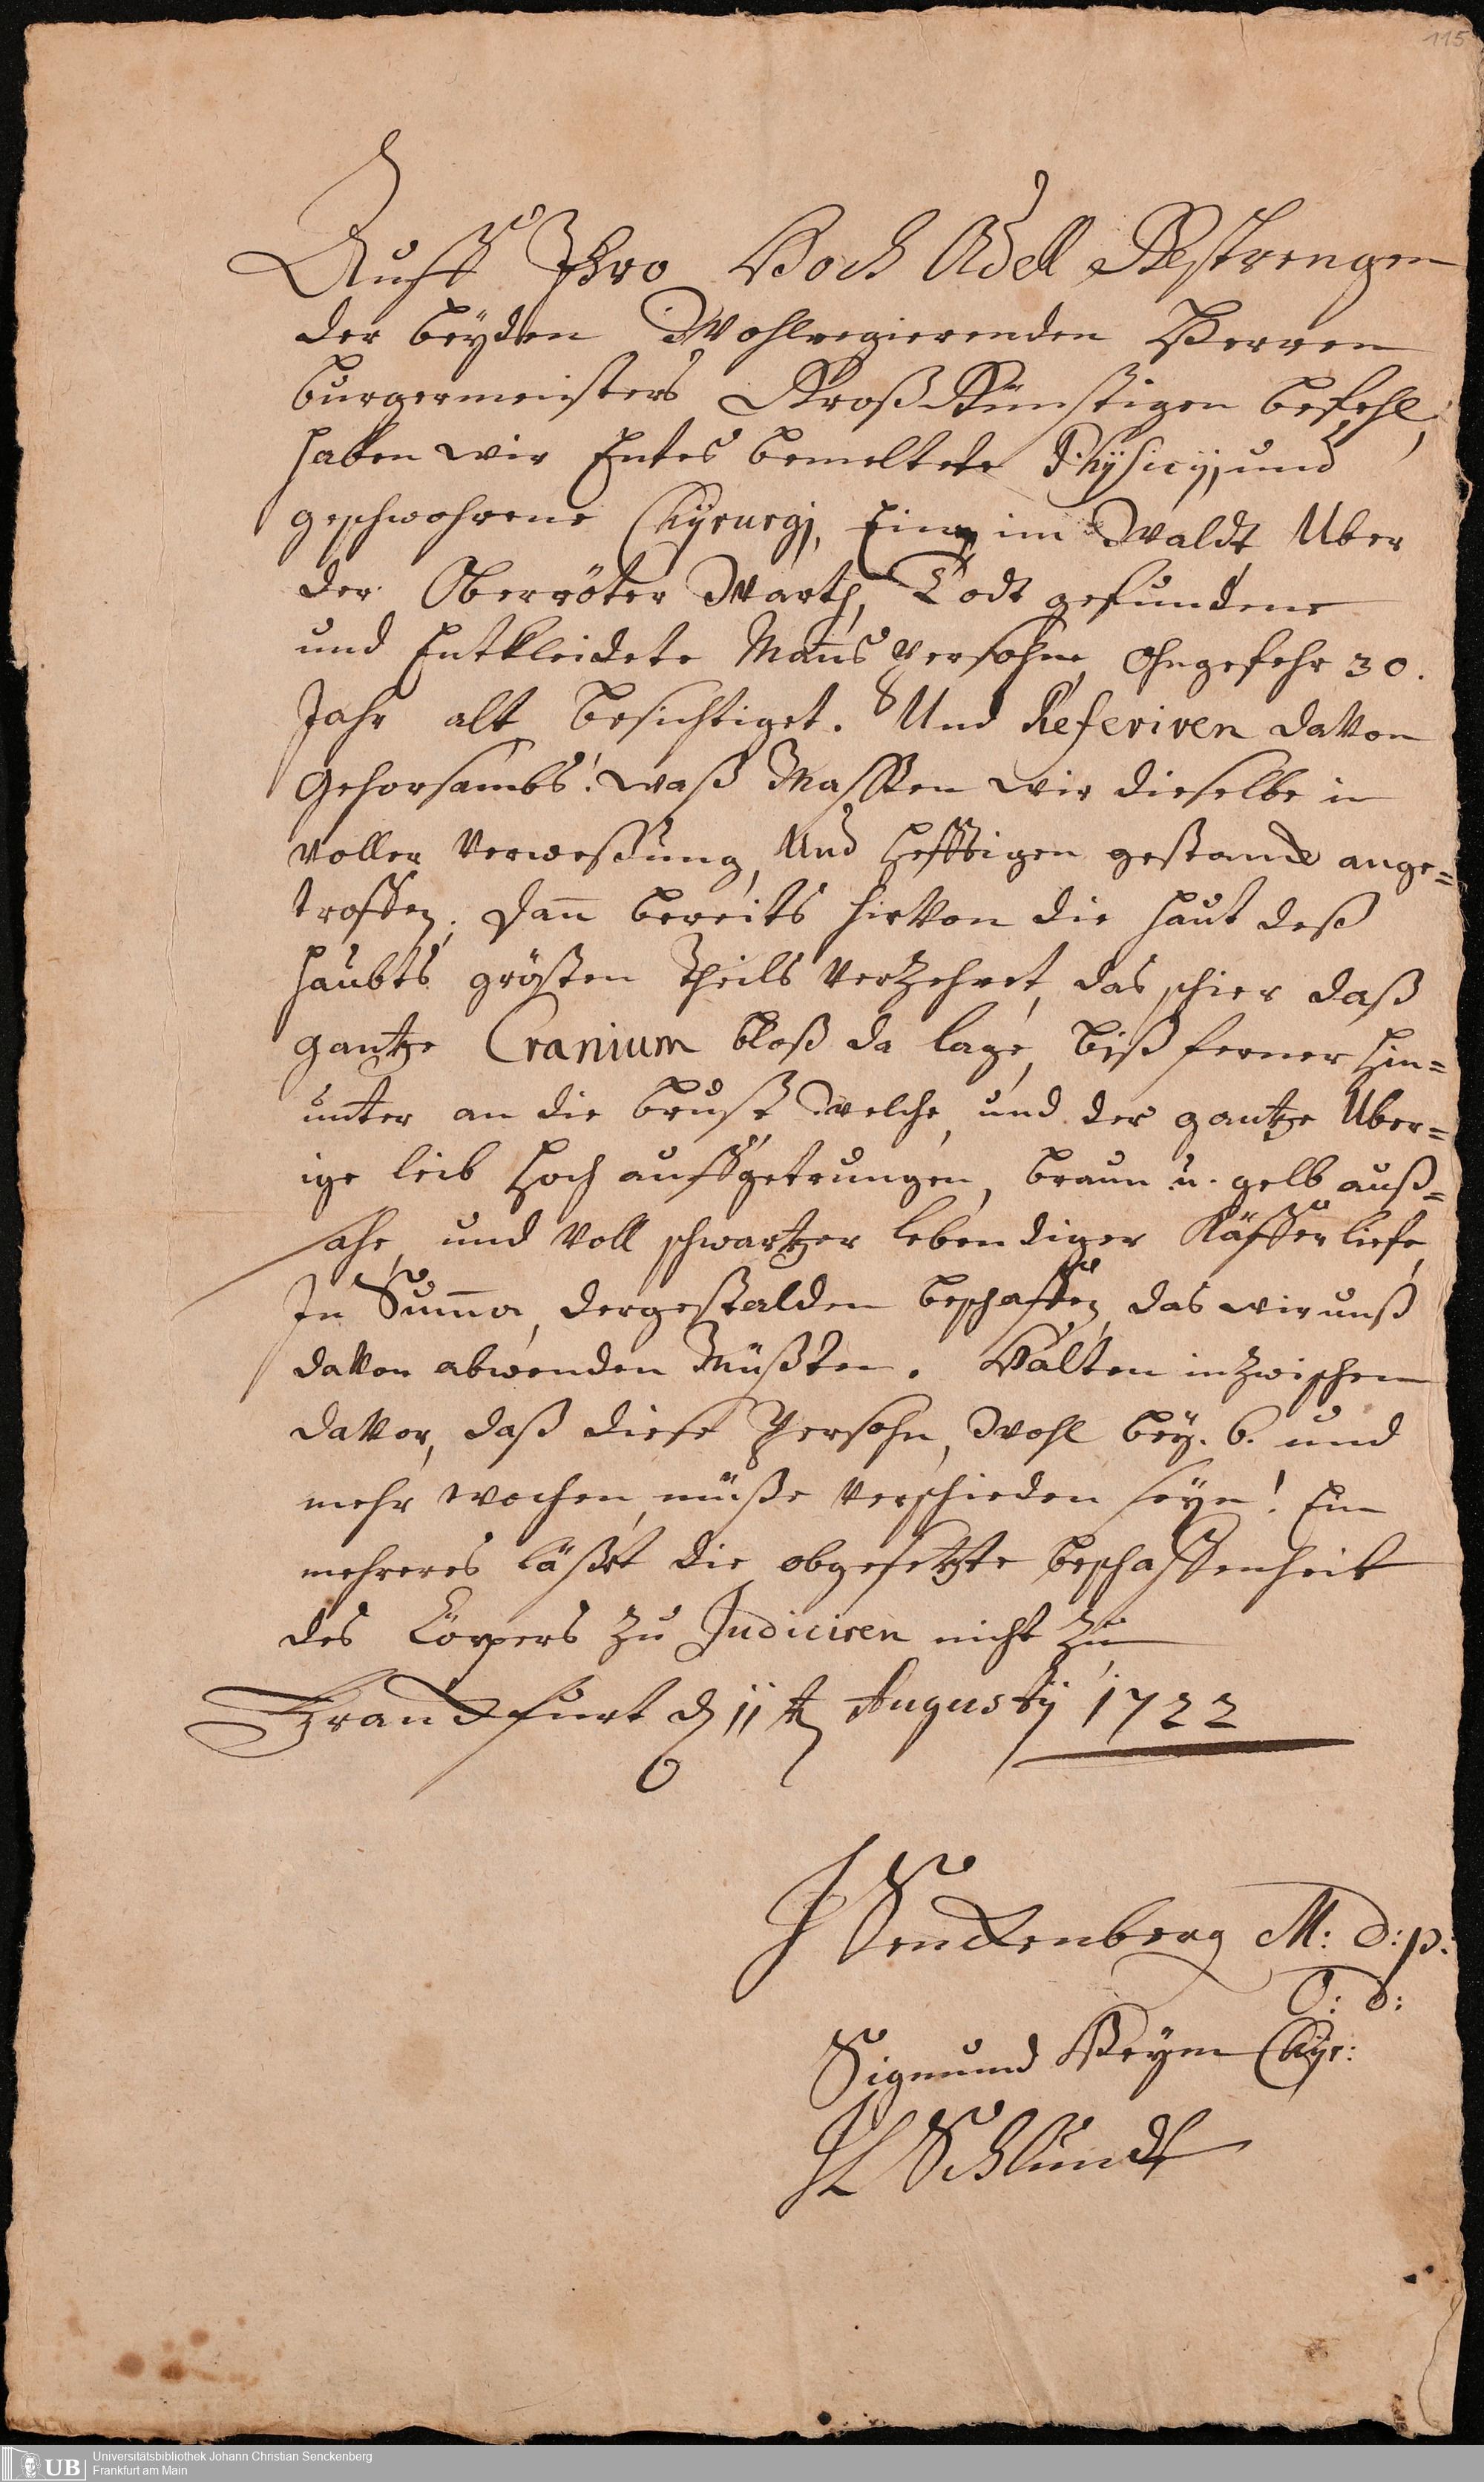 115
Auff Ihro Hoch Adel Gestrengen
der beyden Wohlregierenden Herren
burgermeisters Großgünstigen befehl,
haben wir Entes bemeltete Physicy, und
geschwohrene Chyrurgj, Eine im Waldt Uber
der Oberröter Warth, Todt gefundene
und Entkleidete Manns Persohne, ohngefehr 30.
Jahr alt besichtiget. Und Referiren davon
gehorsambs! waß Massen wir dieselbe in
voller verweßung, Und hefftigen gestand ange=
troffen. dann bereits hirvon die haut deß
haubts grösten Theils verzehret, das schier daß
gantze Cranium bloß da lage, biß ferner hin=
unter an die brust, welche, und der gantze Uber=
ige leib hoch auffgetrungen, braun u. gelb auß=
sahe, und voll schwartzer lebendiger Käffer liefe
In Summa, dergestalden beschaffen, das wir unß
davon abwenden Müßten. Halten inzwischen
davor, daß diese Persohn, wohl bey. 6. und
mehr wochen, müße verschieden seyn! Ein
mehreres läßet die obgesetzte beschaffenheit
des Cörpers zu Judiciren nicht zu
Franckfurt d 11 t Augusty 1722
J Senckenberg M: D: p:
O: d:
Sigmund Beyem Chyr:
JL Schlundt
UB
Universitätsbibliothek Johann Christian Senckenberg
Frankfurt am Main